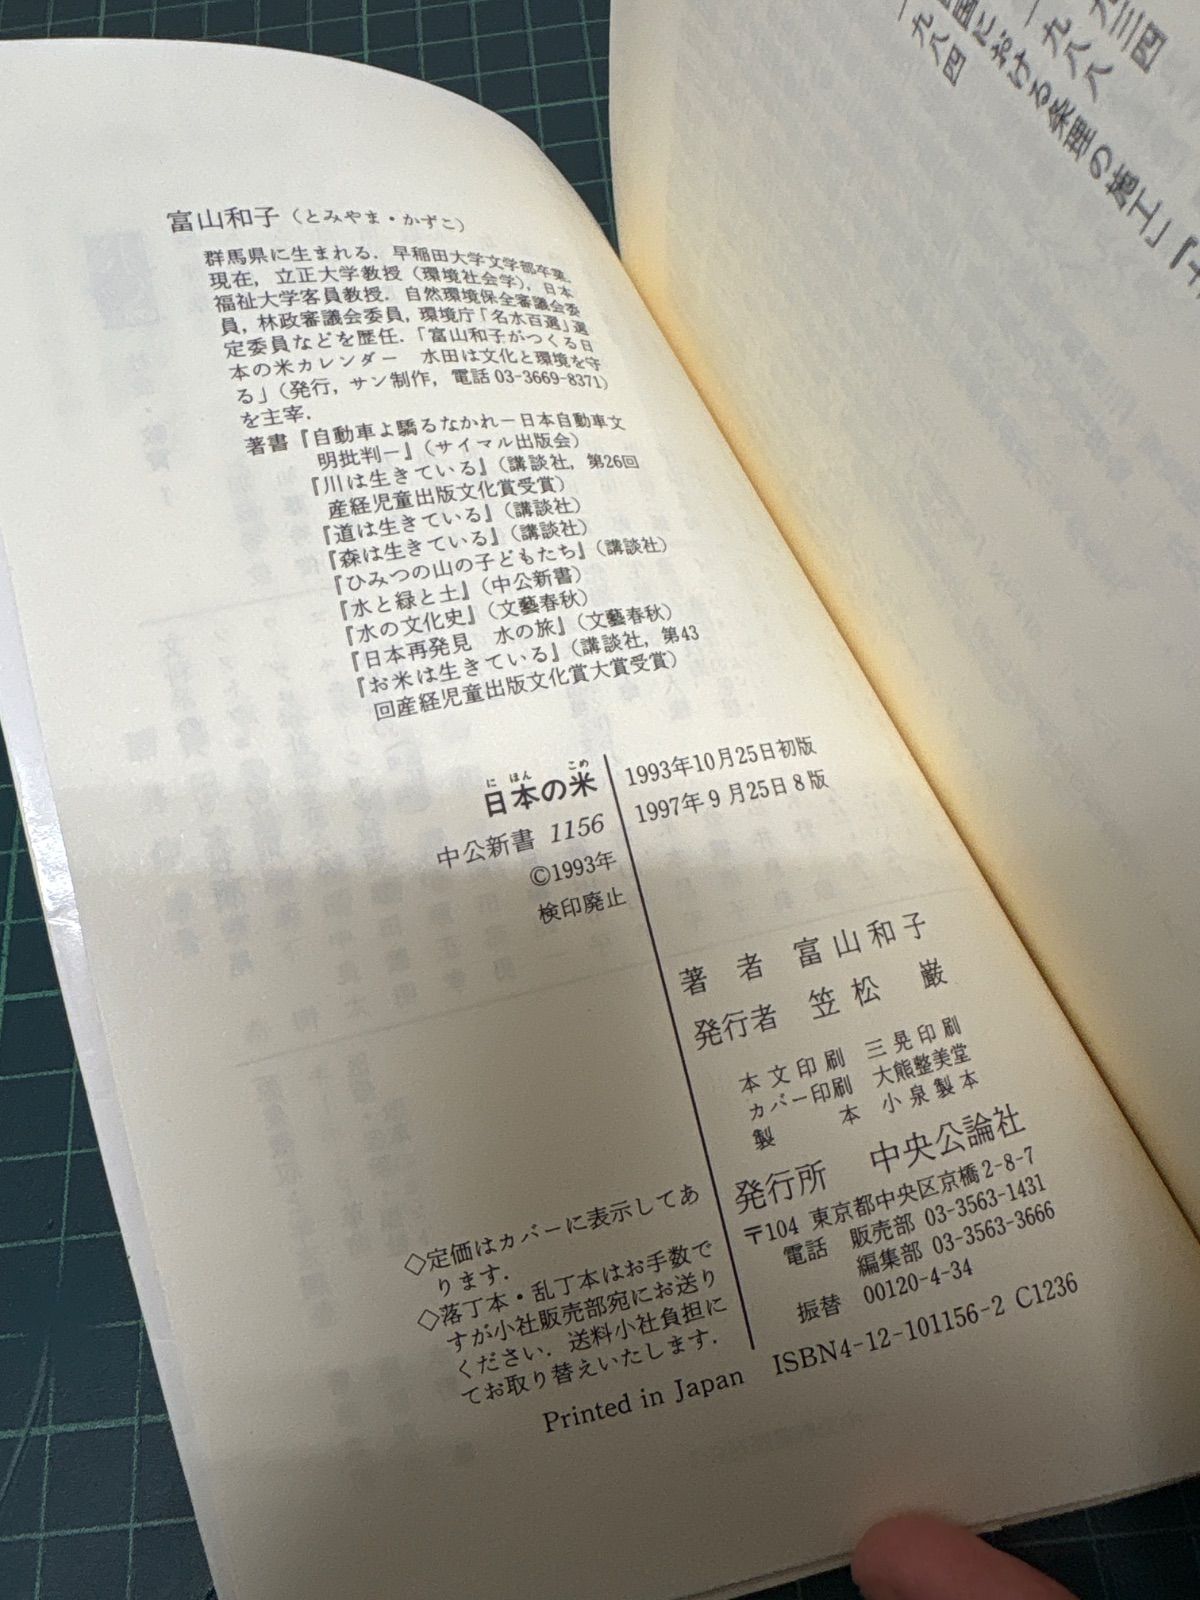 富山和子（とみやま・かずこ）
群馬県に生まれる．早稲田大学文学部卒業．
現在，立正大学教授（環境社会学），日本
福祉大学客員教授．自然環境保全審議会委
員，林政審議会委員，環境庁「名水百選」選
定委員などを歴任．「富山和子がつくる日
本の米カレンダー　水田は文化と環境を守
る」（発行，サン制作，電話03-3669-8371）
を主宰．
著書『自動車よ驕るなかれ－日本自動車文
明批判－』（サイマル出版会）
『川は生きている』（講談社，第26回
産経児童出版文化賞受賞）
『道は生きている』（講談社）
『森は生きている』（講談社）
『ひみつの山の子どもたち』（講談社）
『水と緑と土』（中公新書）
『水の文化史』（文藝春秋）
『日本再発見　水の旅』（文藝春秋）
『お米は生きている』（講談社，第43
回産経児童出版文化賞大賞受賞）
にほん　こめ
日本の米
中公新書 1156
©1993年
検印廃止
1993年10月25日初版
1997年 9 月25日 8 版
著　者　富山和子
発行者　笠松　巌
本文印刷　三晃印刷
カバー印刷　大熊整美堂
製　本　小泉製本
発行所　中央公論社
〒104 東京都中央区京橋2-8-7
電話　販売部 03-3563-1431
編集部 03-3563-3666
振替　00120-4-34
◇定価はカバーに表示してあ
ります．
◇落丁本・乱丁本はお手数で
すが小社販売部宛にお送り
ください．送料小社負担に
てお取り替えいたします．
Printed in Japan　ISBN4-12-101156-2 C1236
九三四
一九八八
国における条理の施工」『土
一九八四